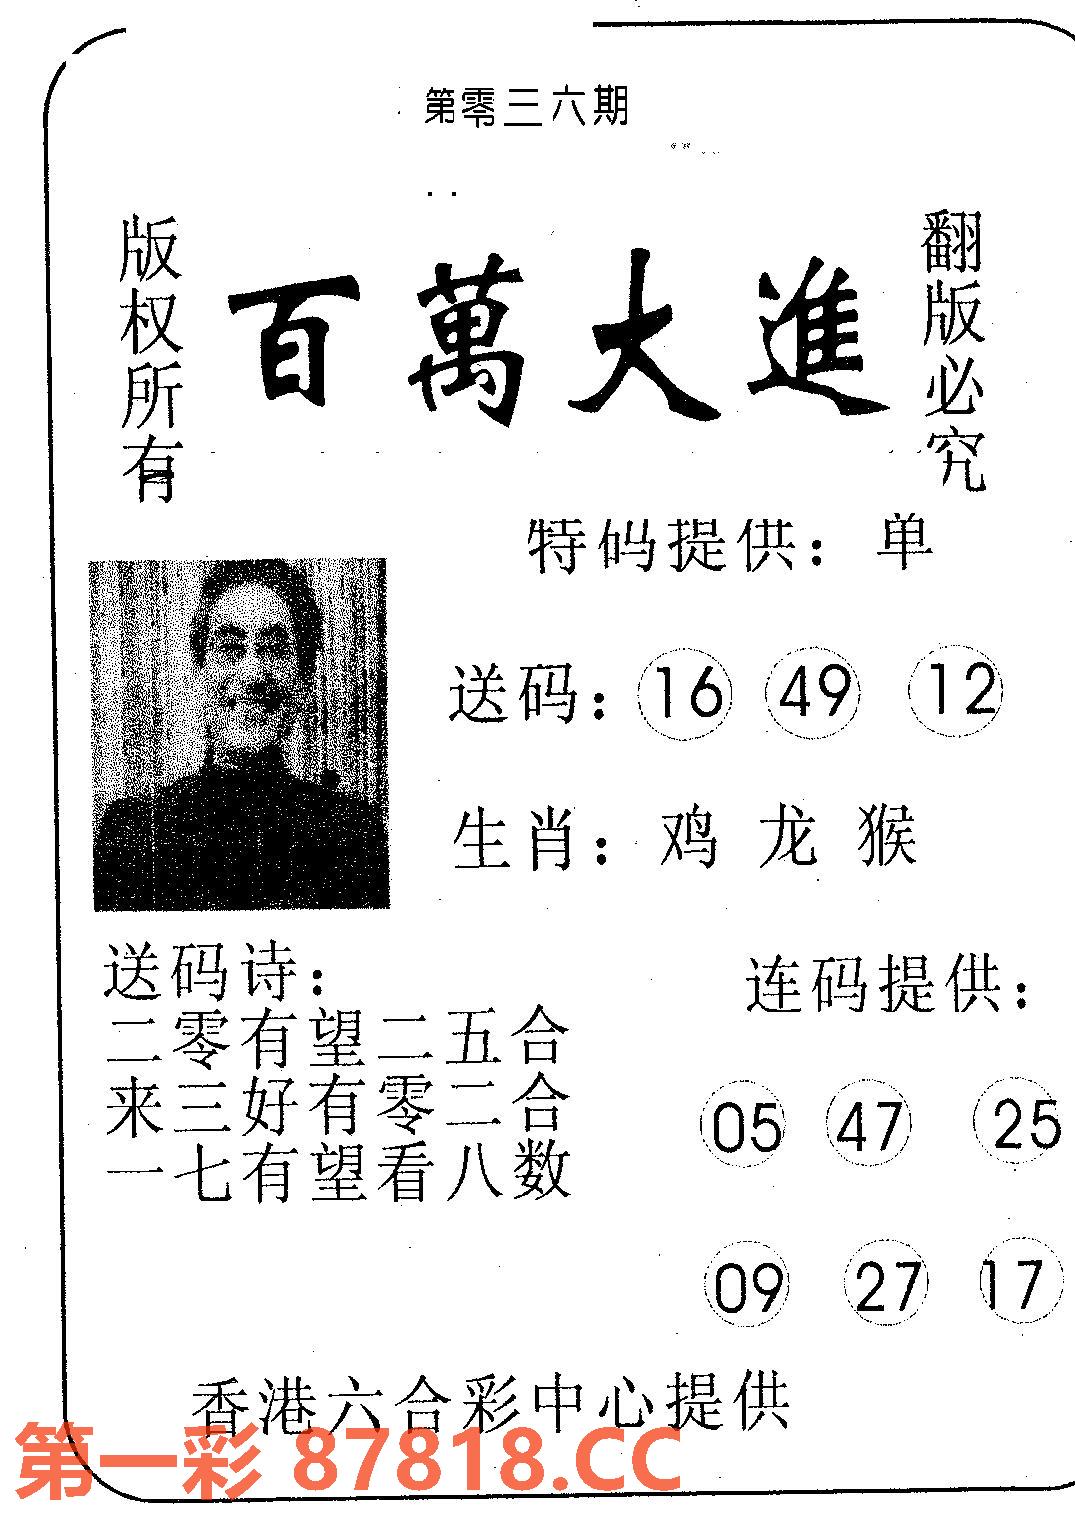 第零三六期
版权所有
百萬大進
翻版必究
特码提供：单
送码：16 49 12
生肖：鸡 龙 猴
送码诗：
二零有望二五合
来三好有零二合
一七有望看八数
连码提供：
05 47 25
09 27 17
香港六合彩中心提供
第一彩 87818.CC